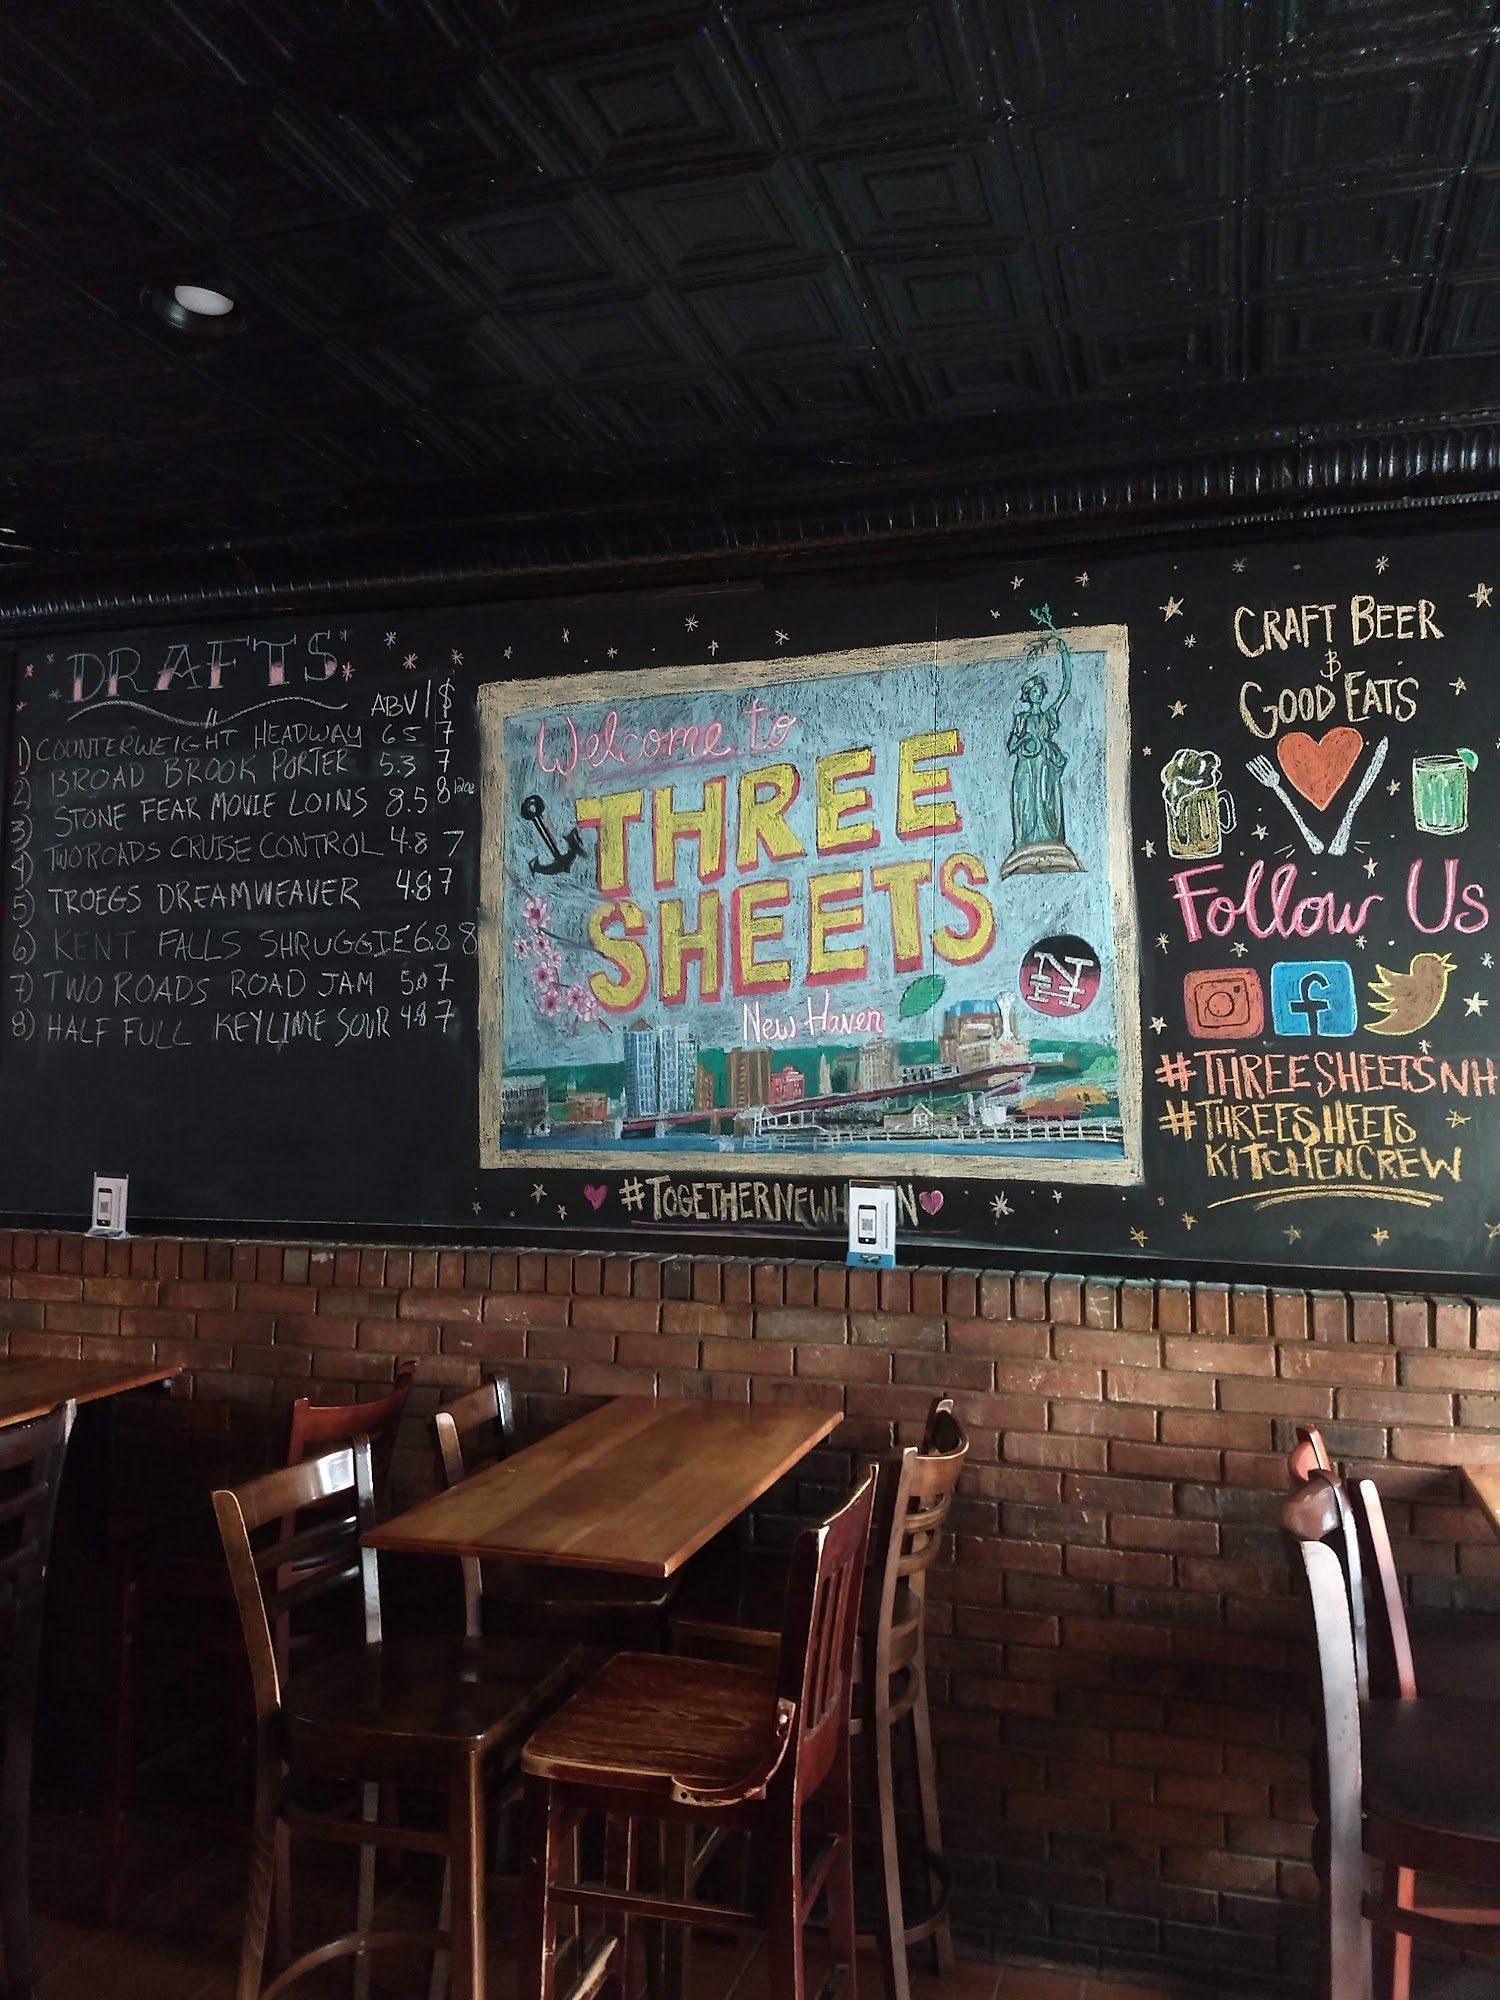 DRAFTS
ABV / $
1) COUNTERWEIGHT HEADWAY 65 7
2) BROAD BROOK PORTER 5.3 7
3) STONE FEAR MOVIE LOINS 8.5 8
4) TWO ROADS CRUISE CONTROL 4.8 7
5) TROEGS DREAMWEAVER 4.8 7
6) KENT FALLS SHRUGGIE 6.8 8
7) TWO ROADS ROAD JAM 5.0 7
8) HALF FULL KEYLIME SOUR 4.8 7
Welcome to
THREE
SHEETS
New Haven
NH
#TOGETHERNEWH
CRAFT BEER
&
GOOD EATS
Follow Us
#THREESHEETSNH
#THREESHEETS
KITCHENCREW